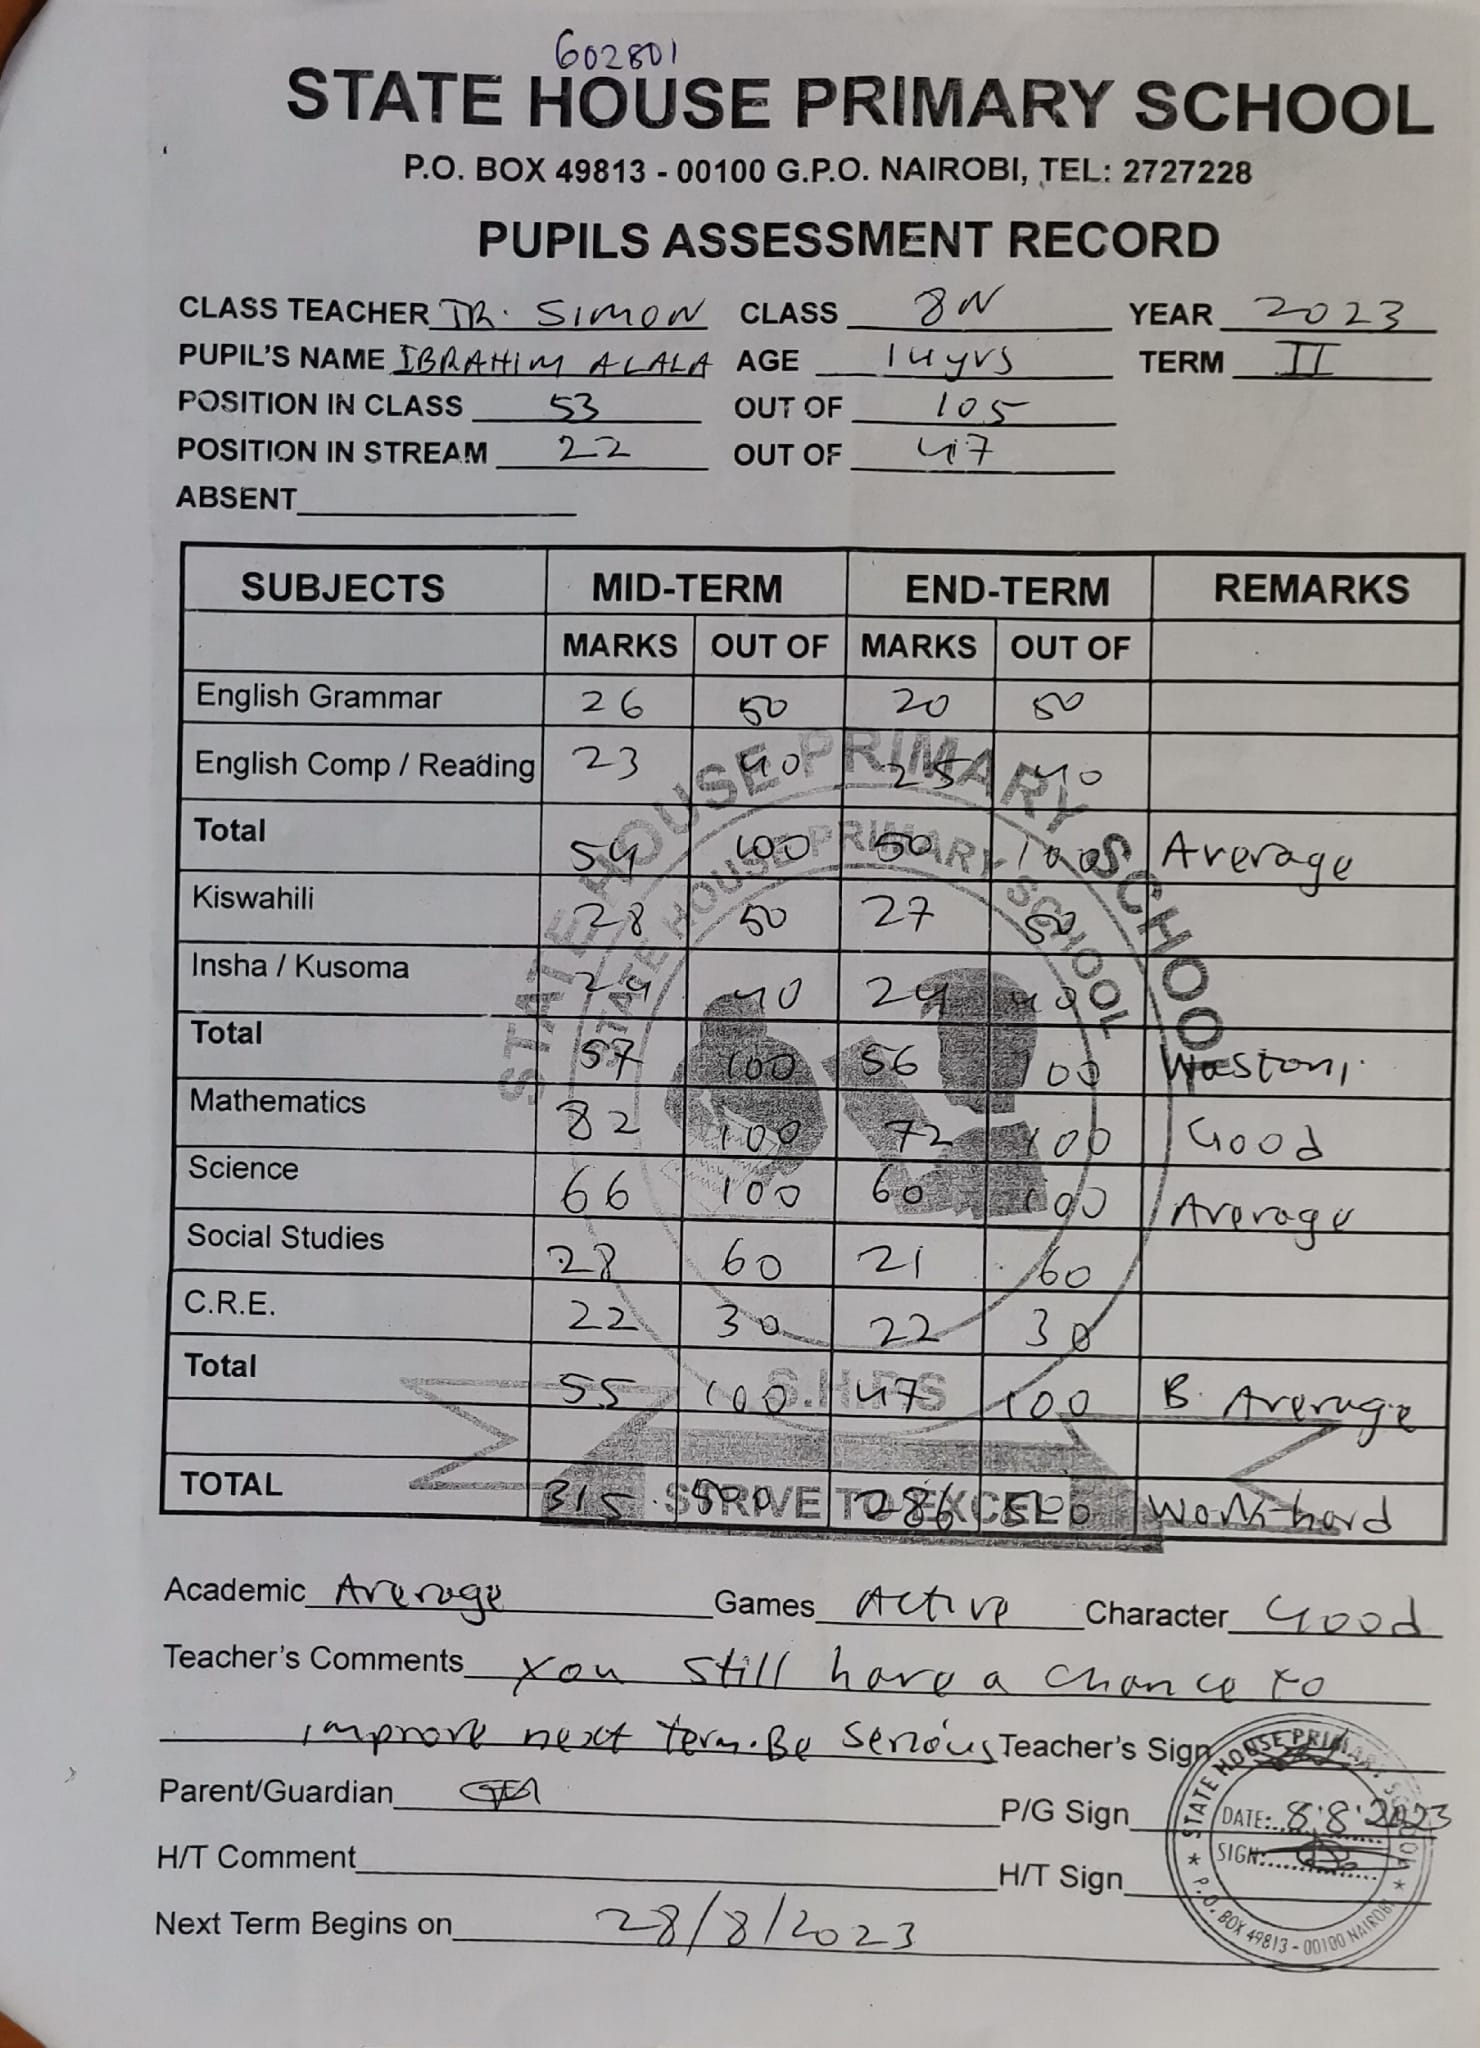 602801
STATE HOUSE PRIMARY SCHOOL
P.O. BOX 49813 - 00100 G.P.O. NAIROBI, TEL: 2727228
PUPILS ASSESSMENT RECORD
CLASS TEACHER TR. SIMON CLASS 8N YEAR 2023
PUPIL'S NAME IBRAHIM ALALA AGE 14yrs TERM II
POSITION IN CLASS 53 OUT OF 105
POSITION IN STREAM 22 OUT OF 47
ABSENT
SUBJECTS MID-TERM END-TERM REMARKS
MARKS OUT OF MARKS OUT OF
English Grammar 26 50 20 50
English Comp / Reading 23 40 25 40
Total 54 100 50 100 Average
Kiswahili 28 50 27 50
Insha / Kusoma 24 40 24 40
Total 57 100 56 100 Wastani
Mathematics 82 100 72 100 Good
Science 66 100 60 100 Average
Social Studies 28 60 21 60
C.R.E. 22 30 22 30
Total 55 100 47 100 B. Average
TOTAL 315 500 286 500 Work hard
STATE HOUSE PRIMARY SCHOOL
STATE HOUSE PRIMARY SCHOOL
S.H.P.S
STRIVE TO EXCEL
Academic Average Games Active Character Good
Teacher's Comments You still have a chance to
improve next term. Be serious Teacher's Sign
Parent/Guardian P/G Sign
H/T Comment H/T Sign
Next Term Begins on 28/8/2023
STATE HOUSE PRIMARY SCHOOL
DATE: 8.8.2023
SIGN:
* P.O. BOX 49813 - 00100 NAIROBI *